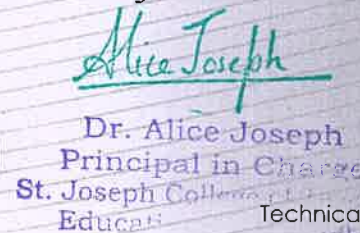 Alice Joseph
Dr. Alice Joseph
Principal in Charge
St. Joseph College
Technica